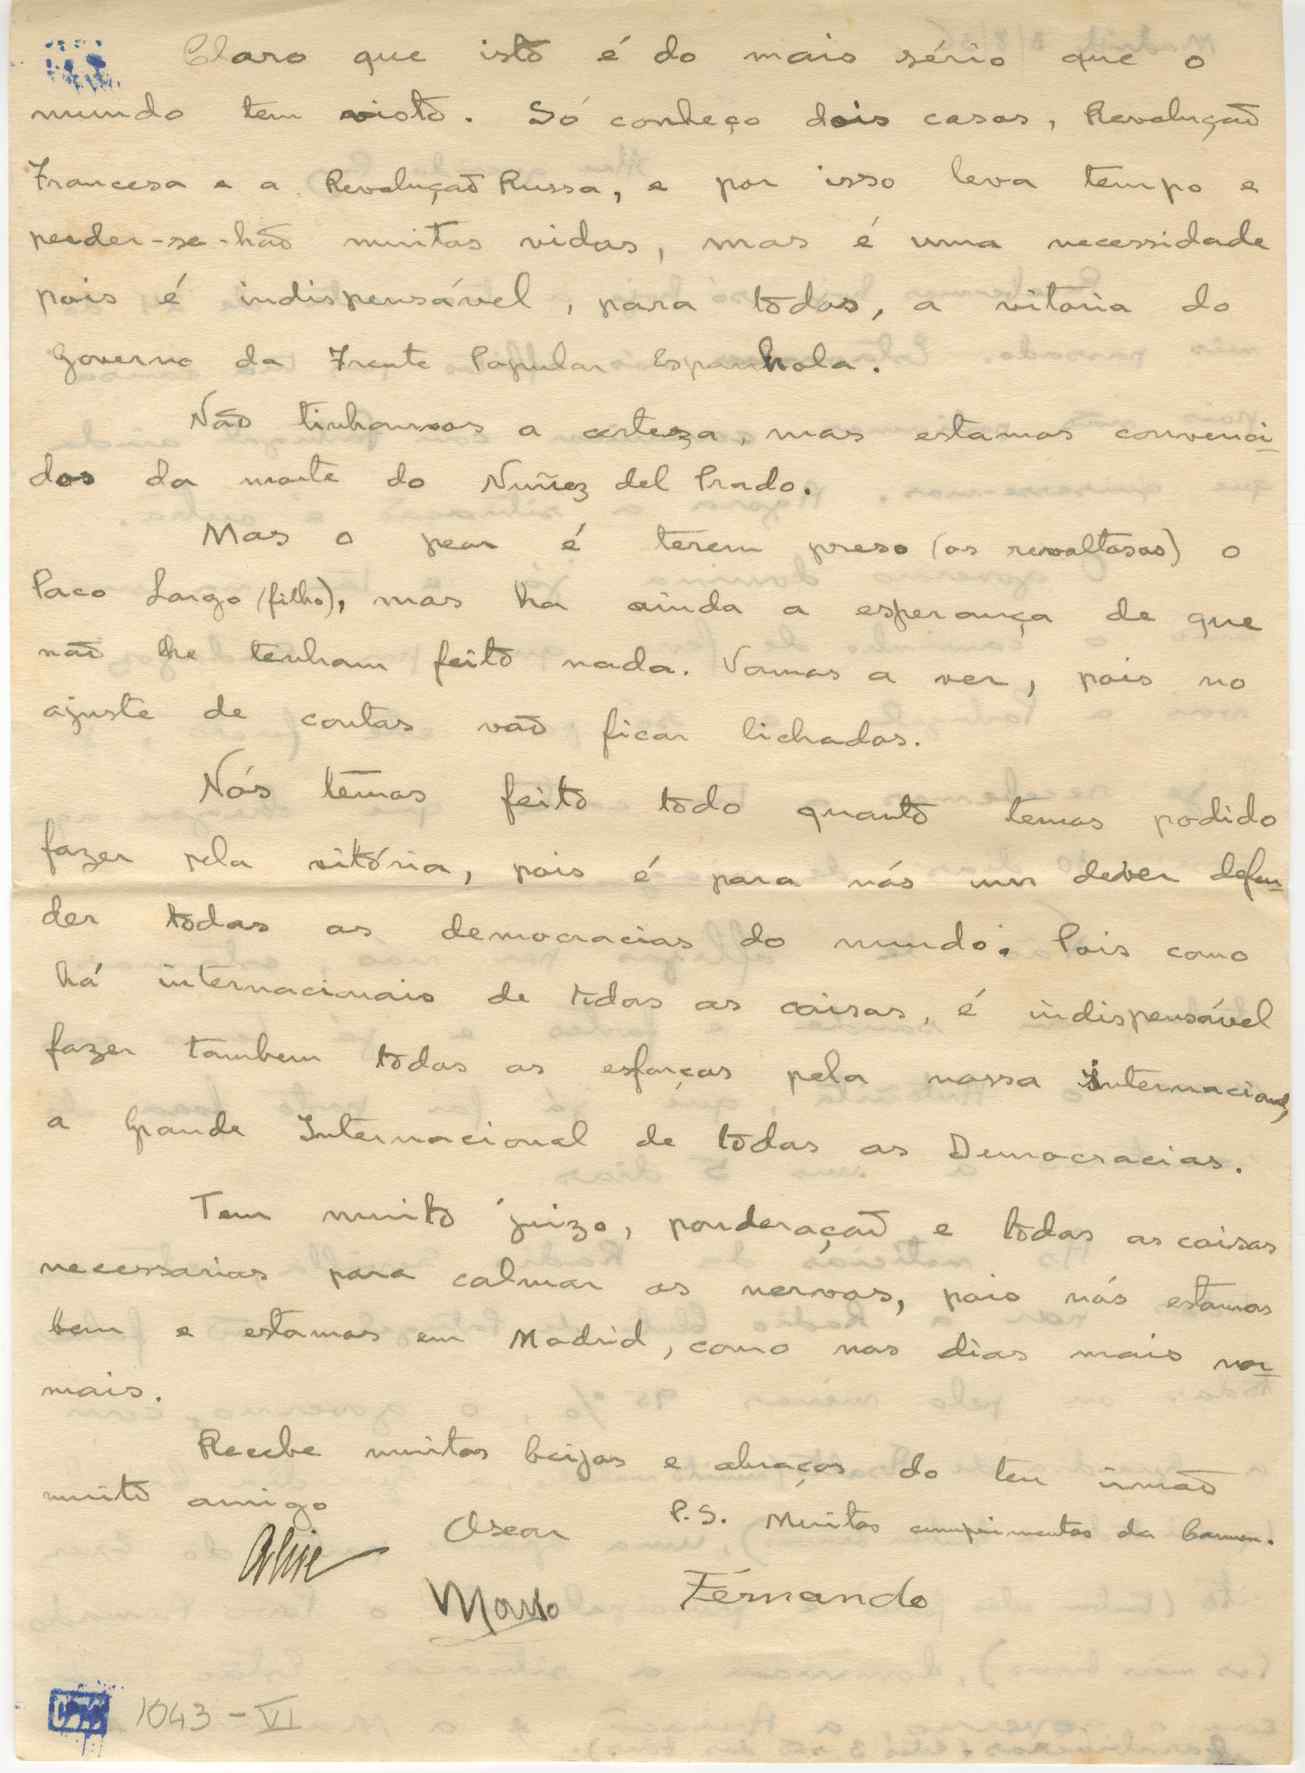 Claro que isto é do mais sério que o
mundo tem visto. Só conheço dois casos, Revolução
Francesa e a Revolução Russa, e por isso leva tempo e
perder-se-hão muitas vidas, mas é uma necessidade
pois é indispensável, para todos, a vitoria do
Governo da Frente Popular Espanhola.
Não tinhamos a certeza, mas estamos convenci-
dos da morte do Nuñez del Prado.
Mas o peor é terem preso (os revoltosos) o
Paco Largo (filho), mas ha ainda a esperança de que
não lhe tenham feito nada. Vamos a ver, pois no
ajuste de contas vão ficar lichados.
Nós temos feito todo quanto temos podido
fazer pela vitória, pois é para nós um dever defen-
der todas as democracias do mundo. Pois como
há internacionais de todas as coisas, é indispensável
fazer tambem todos os esforços pela nossa internacional,
a Grande Internacional de todas as Democracias.
Tem muito juizo, ponderação e todas as coisas
necessarias para calmar os nervos, pois nós estamos
bem e estamos em Madrid, como nos dias mais nor-
mais.
Recebe muitos beijos e abraços do teu irmão
muito amigo
Oscar
P.S. Muitos cumprimentos da Carmen.
Mario
Fernando
1043-VI